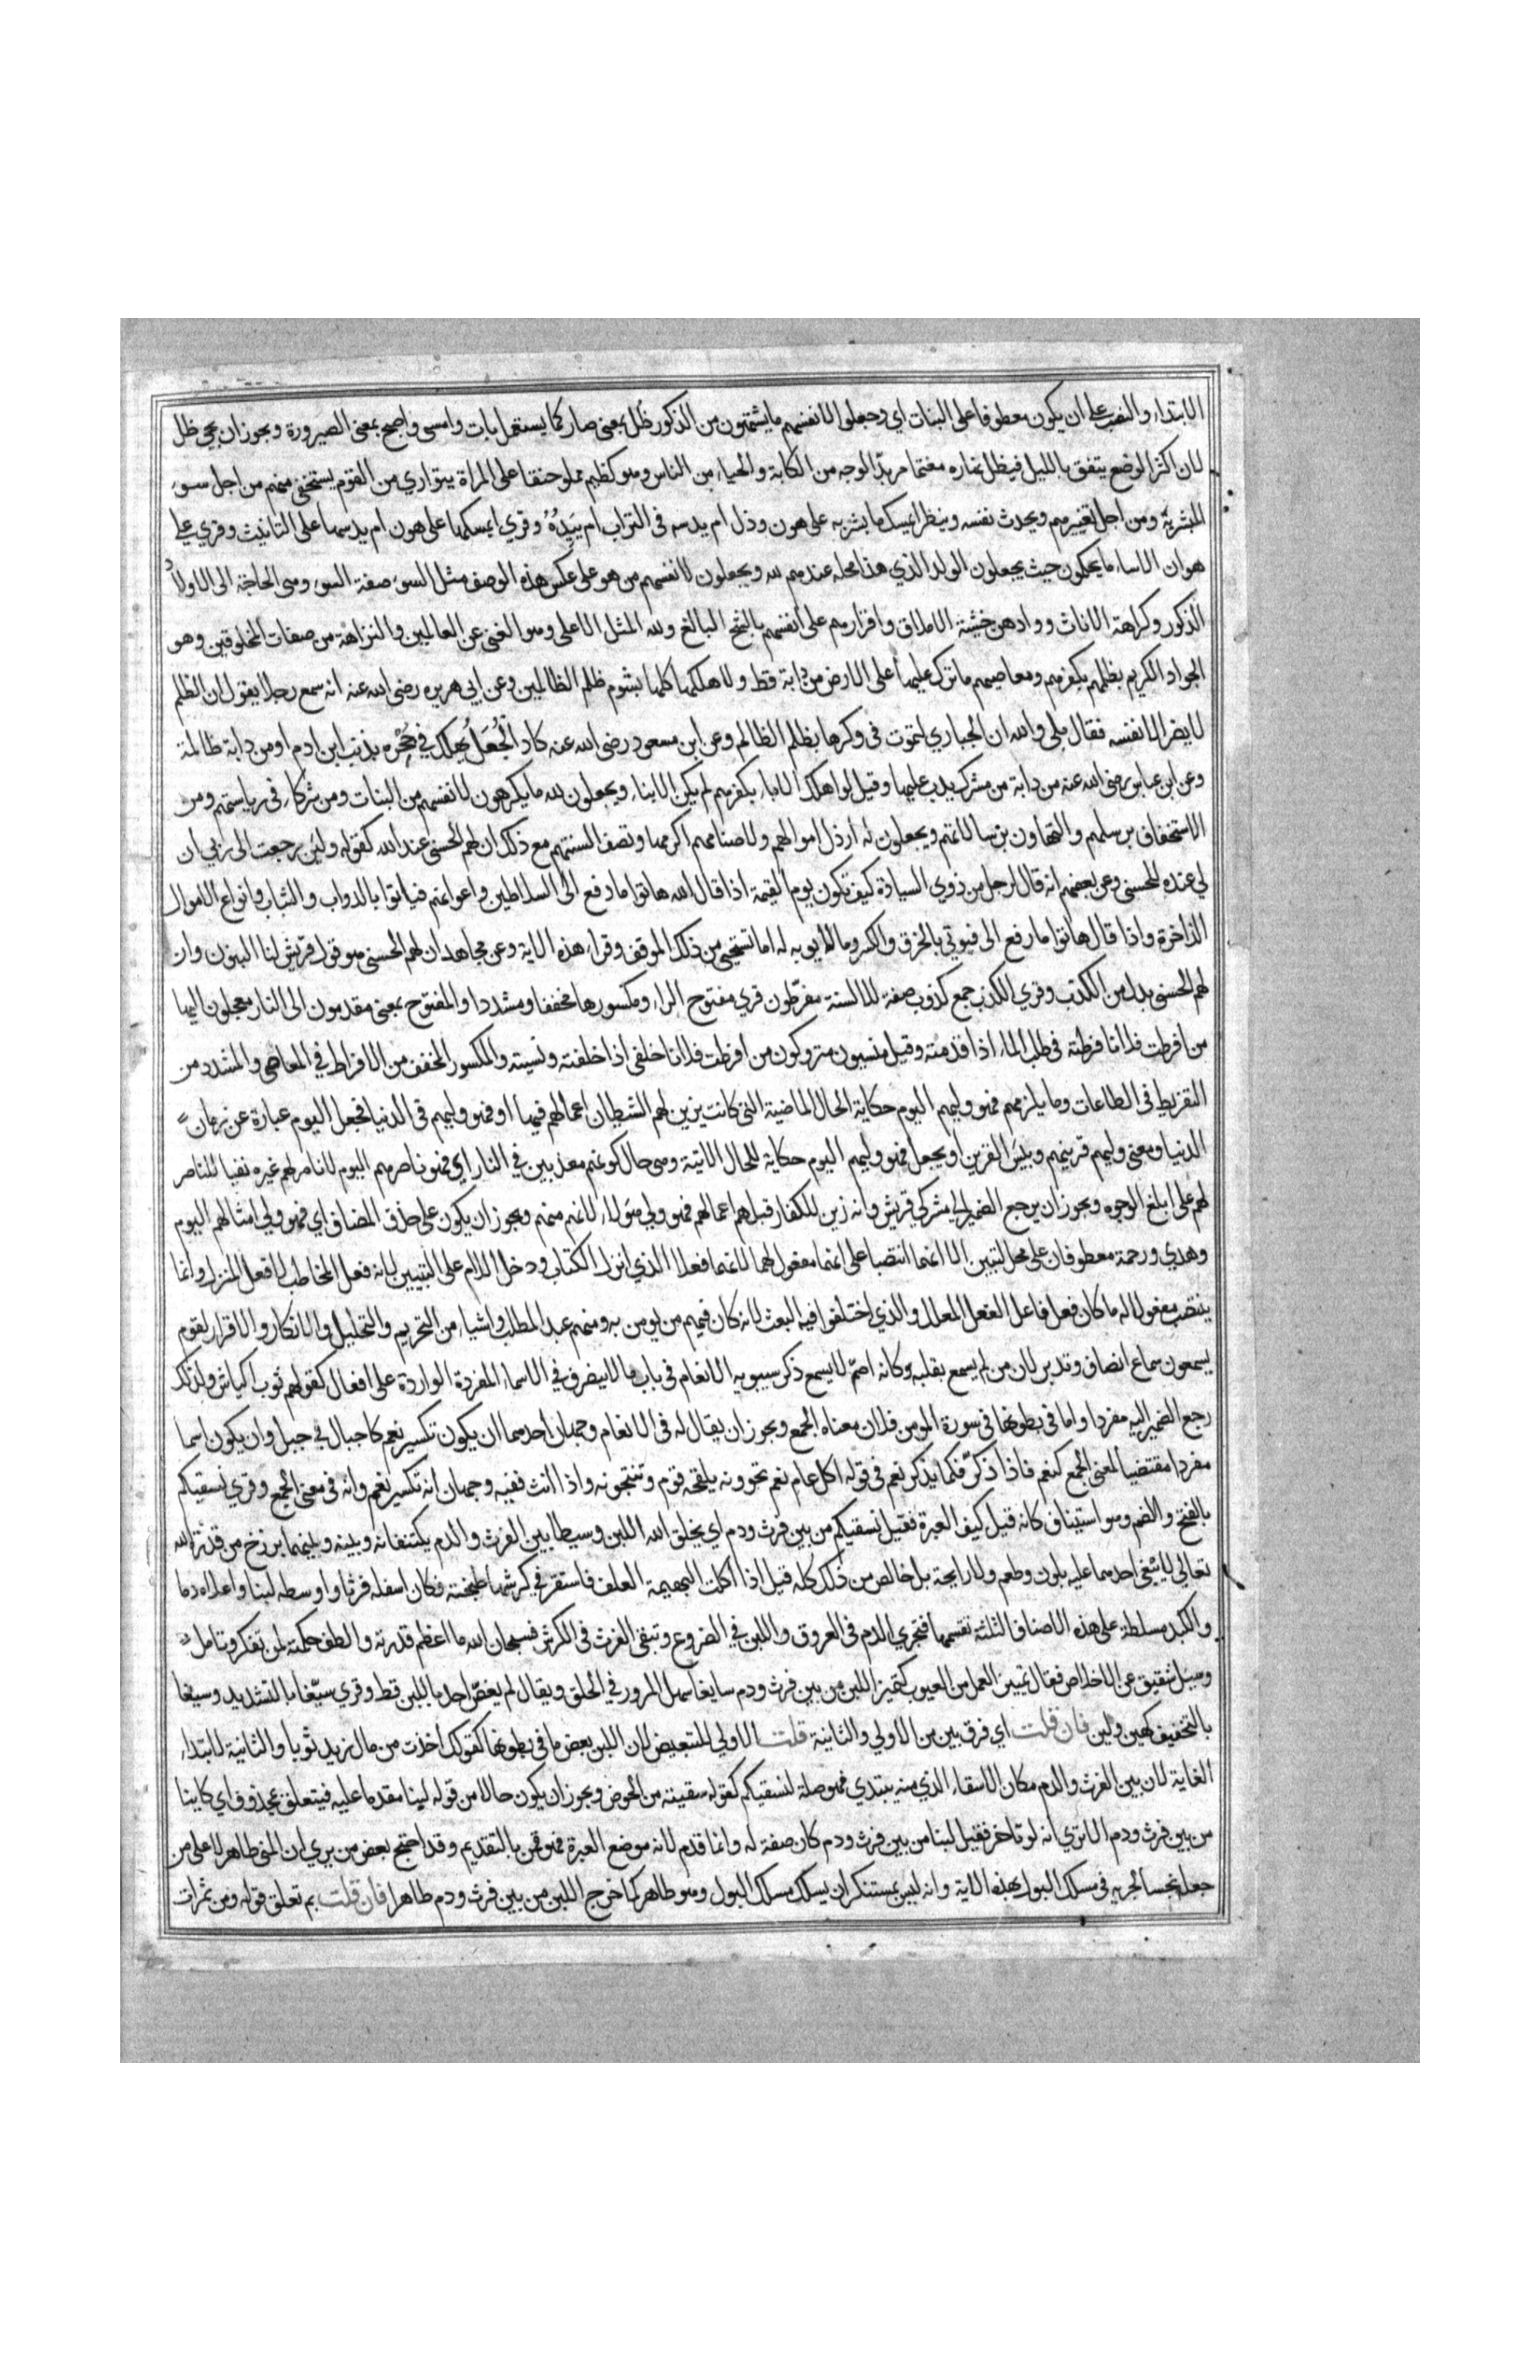 الابتداء والنصب على ان يكون معطوفا على البنات اي وجعلوا لانفسهم ما يشتهون من الذكور ظل بمعنى صار كما يستعمل بات وامسى واصبح بمعنى الصيرورة ويجوز ان يجي ظل
لان اكثر الوضع يتفق بالليل فيظل نهاره مغتما مربد الوجه من الكابة والحياء من الناس وهو كظيم مملو حنقا على المراة يتواري من القوم يستخفي منهم من اجل سوء
المبشر به ومن اجل تعييرهم ويحدث نفسه وينظر ايمسك ما بشر به على هون وذل ام يدسه فى التراب ام يئده وقري ايمسكها على هون ام يدسها على التانيث وقري على
هوان الا ساء ما يحكمون حيث يجعلون الولد الذي هذا محله عندهم لله ويجعلون لانفسهم من هو على عكس هذه الوصف مثل السوء صفة السوء وهى الحاجة الى الاولاد
الذكور وكراهة الاناث ووادهن خشية الاملاق واقرارهم على انفسهم بالشح البالغ ولله المثل الاعلى وهو الغنى عن العالمين والنزاهة من صفات المخلوقين وهو
الجواد الكريم بظلمهم بكفرهم ومعاصيهم ما ترك عليها على الارض من دابة قط ولاهلكها كلها بشوم ظلم الظالمين وعن ابي هريره رضى الله عنه انه سمع رجلا يقول ان الظلم
لا يضر الا نفسه فقال بلى والله ان الحباري لتموت فى وكرها بظلم الظالم وعن ابن مسعود رضى الله عنه كاد الجعل يهلك في جحره بذنب ابن ادم او من دابة ظالمة
وعن ابن عباس رضى الله عنه من دابة من مشرك يدب عليها وقيل لو اهلك الاباء بكفرهم لم يكن الابناء ويجعلون لله ما يكرهون لانفسهم من البنات ومن شركاء فى رياستهم ومن
الاستخفاف برسلهم والتهاون برسالاتهم ويجعلون له ارذل اموالهم ولاصنامهم اكرمها وتصف السنتهم مع ذلك ان لهم الحسنى عند الله كقوله ولئن رجعت الى ربي ان
لي عنده للحسنى وعن بعضهم انه قال لرجل من ذوي السيادة كيف تكون يوم القيمة اذا قال الله هاتوا ما دفع الى السلاطين واعوانهم فياتوا بالدواب والثياب وانواع الاموال
الذاخرة واذا قال هاتوا ما رفع الى فيوتي بالخرق والكسر وما لا يوبه له اما تستحيى من ذلك الموقف وقراء هذه الاية وعن مجاهد ان لهم الحسنى هو قول قريش لنا البنون وان
لهم الحسنى بدل من الكذب وقري الكذب جمع كذوب صفة للالسنة مفرطون قري مفتوح الراء ومكسورها مخففا ومشددا والمفتوح بمعنى مقدمون الى النار معجلون اليها
من افرطت فلانا وفرطته فى طلب الماء اذا قدمته وقيل منسيون متروكون من افرطت فلانا خلفى اذا خلفته ونسيته والمكسور المخفف من الافراط في المعاصى والمشدد من
التفريط فى الطاعات وما يلزمهم فهو وليهم اليوم حكاية الحال الماضية التى كانت يزين لهم الشيطان اعمالهم فيها او فهو وليهم فى الدنيا فجعل اليوم عبارة عن زمان
الدنيا ومعنى وليهم قرينهم وبيس القرين او يجعل فهو وليهم اليوم حكاية للحال الاتية وهى حال كونهم معذبين في النار اي فهو ناصرهم اليوم لا ناصر لهم غيره نفيا للناصر
لهم على ابلغ الوجوه ويجوز ان يرجع الضمير الى مشركي قريش وانه زين للكفار قبلهم اعمالهم فهو ولي هولاء لانهم منهم ويجوز ان يكون على حذف المضاف اي فهو ولي امثالهم اليوم
وهدي ورحمة معطوفان على محل لتبين الا انهما انتصبا على انهما مفعول لهما لانهما فعلا الذي انزل الكتاب ودخل اللام على لتبيين لانه فعل المخاطب لا فعل المنزل وانما
ينتصب مفعولا له ما كان فعل فاعل الفعل المعلل والذي اختلفوا فيه البعث لانه كان فيهم من يومن به ومنهم عبد المطلب واشياء من التحريم والتحليل والانكار والاقرار لقوم
يسمعون سماع انصاف وتدبر لان من لم يسمع بقلبه وكانه اصم لا يسمع ذكر سيبويه الانعام فى باب ما لا ينصرف في الاسماء المفردة الواردة على افعال كقولهم ثوب اكياش ولذلك
رجع الضمير اليه مفردا واما فى بطونها فى سورة المومن فلان معناه الجمع ويجوز ان يقال له فى الانعام وجهان احدهما ان يكون تكسير نعم كاجبال في جبل وان يكون اسما
مفردا مقتضيا لمعنى الجمع كنعم فاذا ذكر فكما يذكر نعم فى قوله اكل عام نعم تحوونه يلقحه قوم وتنتجونه واذا انث ففيه وجهان انه تكسير نعم وانه فى معنى الجمع وقري نسقيكم
بالفتح والضم وهو استيناف كانه قيل كيف العبرة فقيل نسقيكم من بين فرث ودم اي يخلق الله اللبن وسيطا بين الفرث والدم يكتنفانه وبينه وبينهما برزخ من قدرة الله
تعالى لا يبغى احدهما عليه بلون وطعم ولا رايحة بل خالص من ذلك كله قيل اذا اكلت البهيمة العلف فاستقر في كرشها طبخته فكان اسفله فرثا واوسطه لبنا واعلاه دما
والكبد مسلطة على هذه الاصناف الثلثة تقسمها فتجري الدم فى العروق واللبن في الضروع وتبقى الفرث فى الكرش فسبحان الله ما اعظم قدرته والطف حكمته لمن تفكر وتامل
وسيل شقيق عن الاخلاص فقال تمييز العمل من العيوب كتمييز اللبن من بين فرث ودم سايغا سهل المرور في الحلق ويقال لم يغص احد باللبن قط وقري سيغا بالتشديد وسيغا
بالتخفيف كهين ولين فان قلت اي فرق بين من الاولي والثانية قلت الاولي للتبعيض لان اللبن بعض ما فى بطونها كقولك اخذت من مال زيد ثوبا والثانية لابتداء
الغاية لان بين الفرث والدم مكان الاسقاء الذي منه يبتدي فهو صلة لنسقيكم كقوله سقيته من الحوض ويجوز ان يكون حالا من قوله لبنا مقدما عليه فيتعلق بمحذوف اي كاينا
من بين فرث ودم الا تري انه لو تاخر فقيل لبنا من بين فرث ودم كان صفة له وانما قدم لانه موضع العبرة فهو قمن بالتقديم وقد احتج بعض من يري ان المنى طاهر لا على من
جعله نجسا لجريه فى مسلك البول بهذه الاية وانه ليس بمستنكر ان يسلك مسلك البول وهو طاهر كما خرج اللبن من بين فرث ودم طاهرا فان قلت بم تعلق قوله ومن ثمرات